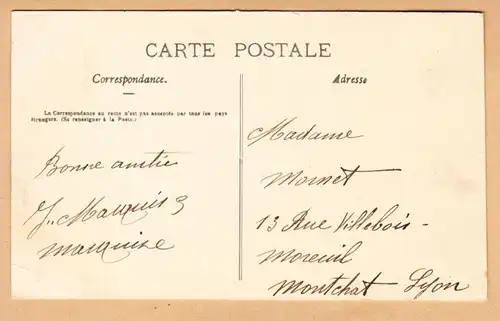 CARTE POSTALE
Correspondance.
La Correspondance au recto n'est pas acceptée par tous les pays
étrangers. (Se renseigner à la Poste.)
Bonne amitié
J. Marquis &
marquise
Adresse
Madame
Mornet
13 Rue Villebois-
Moreuil
Montchat - Lyon